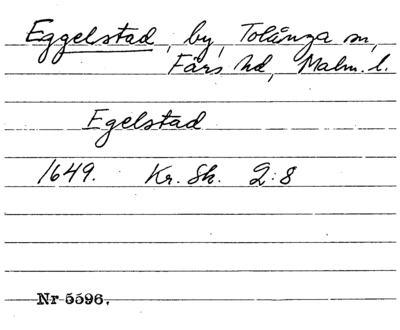 Eggelstad, by, Tolånga sn,
Färs hd, Malm. l.
Egelstad
1649. Kr. Sk. 2:8
Nr 5596.